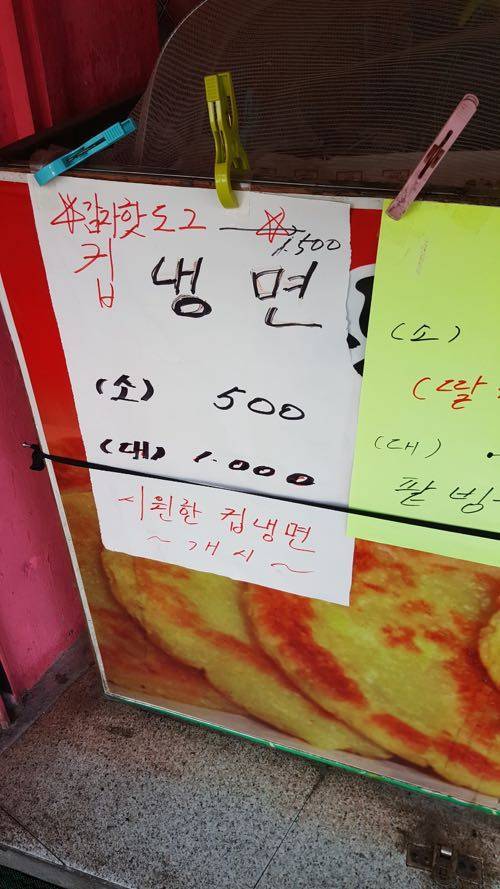 ☆감자핫도그 ☆
1.500
컵 냉면
(소) 500
(대) 1.000
시원한 컵냉면
~개시~
(소)
(딸
(대)
팥빙